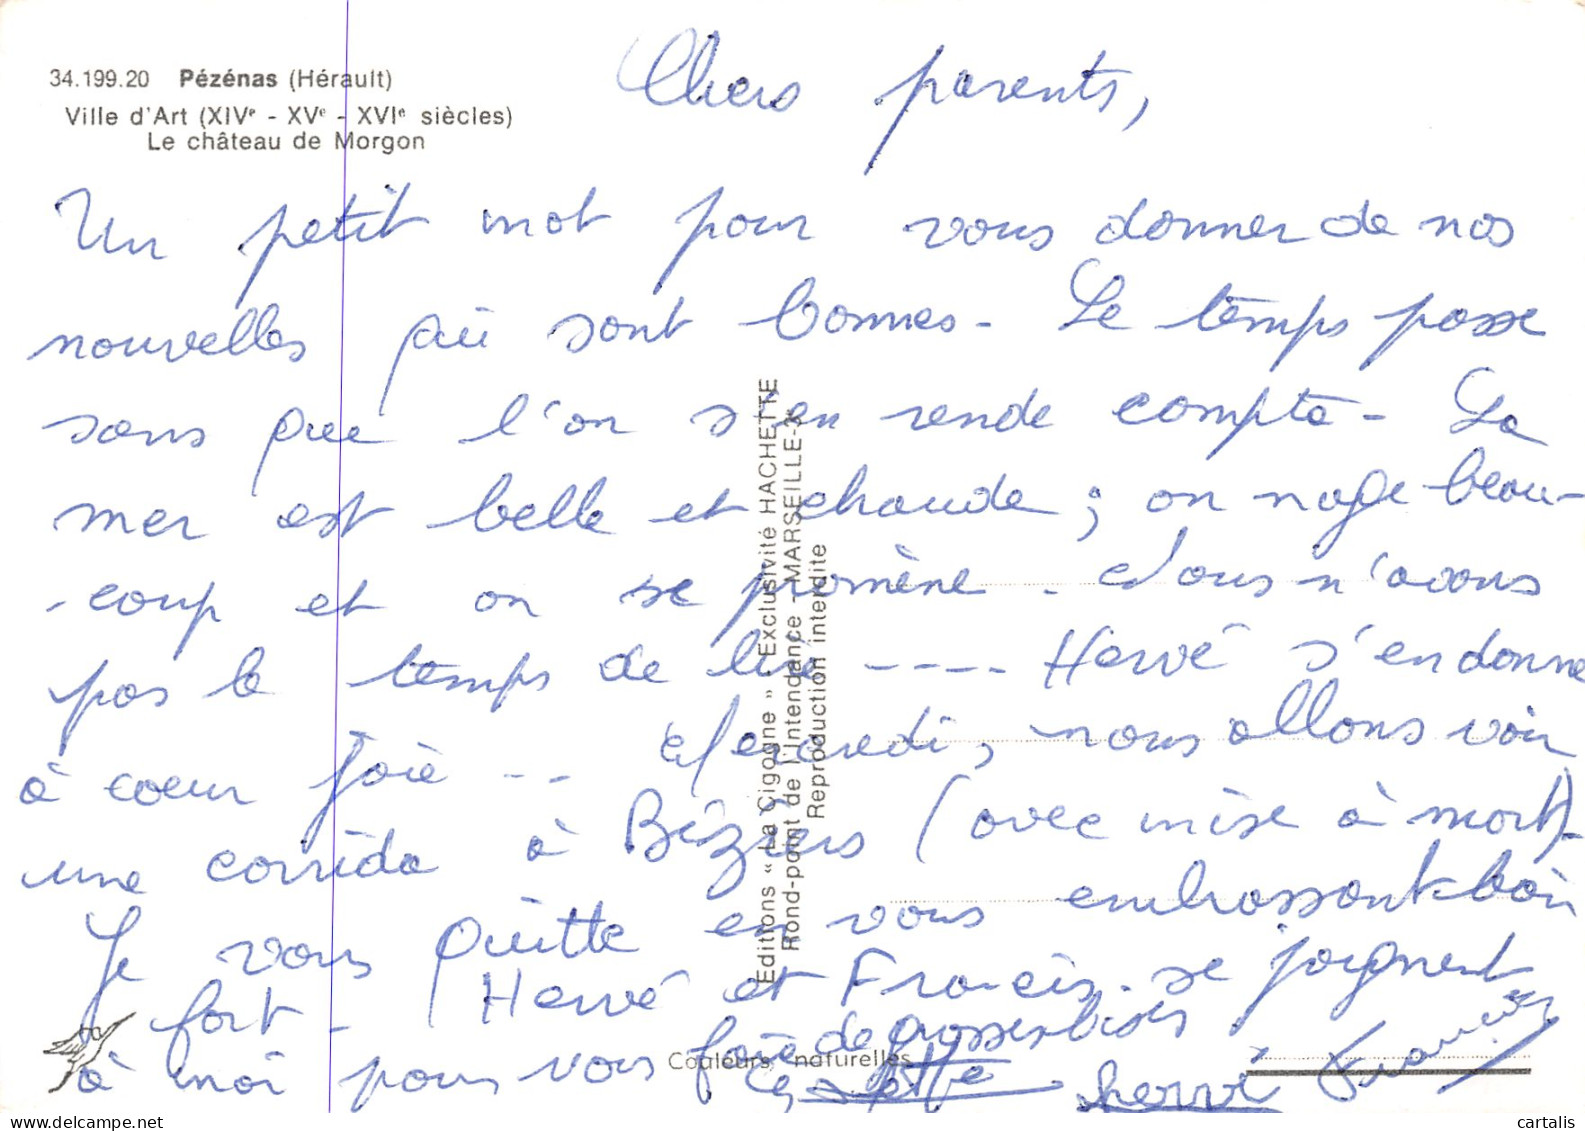 34.199.20 Pézénas (Hérault)
Ville d'Art (XIVe - XVe - XVIe siècles)
Le château de Morgon
Chers parents,
Un petit mot pour vous donner de nos
nouvelles qui sont bonnes - Le temps passe
sans que l'on s'en rende compte - La
mer est belle et chaude ; on nage beau-
-coup et on se promène - Nous n'avons
pas le temps de lire ---- Hervé s'en donne
à coeur joie -- Mercredi, nous allons voir
une corrida à Béziers (avec mise à mort) -
Je vous quitte en vous embrassant bien
fort - Hervé et Francis se joignent
à moi pour vous faire de grosses bises
Hervé Francis
Editions « La Cigogne » - Exclusivité HACHETTE
Rond-point de l'Intendance - MARSEILLE-3e
Reproduction interdite
Couleurs naturelles
cartalis